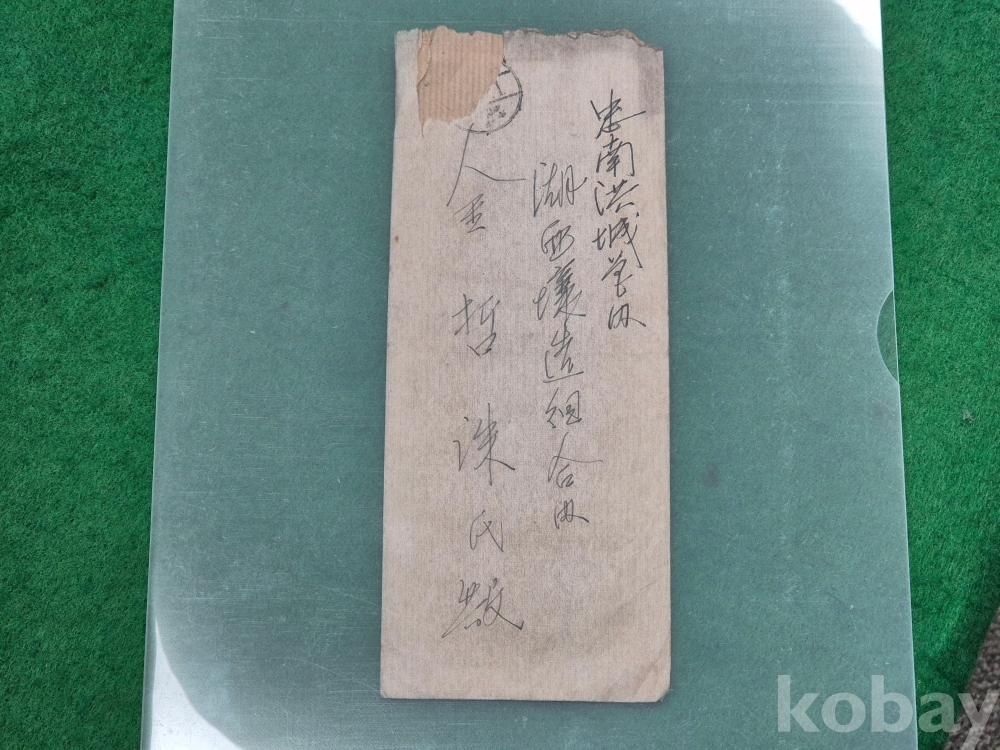 忠南洪城邑内
湖西釀造組合内
金哲洙氏殿
kobay